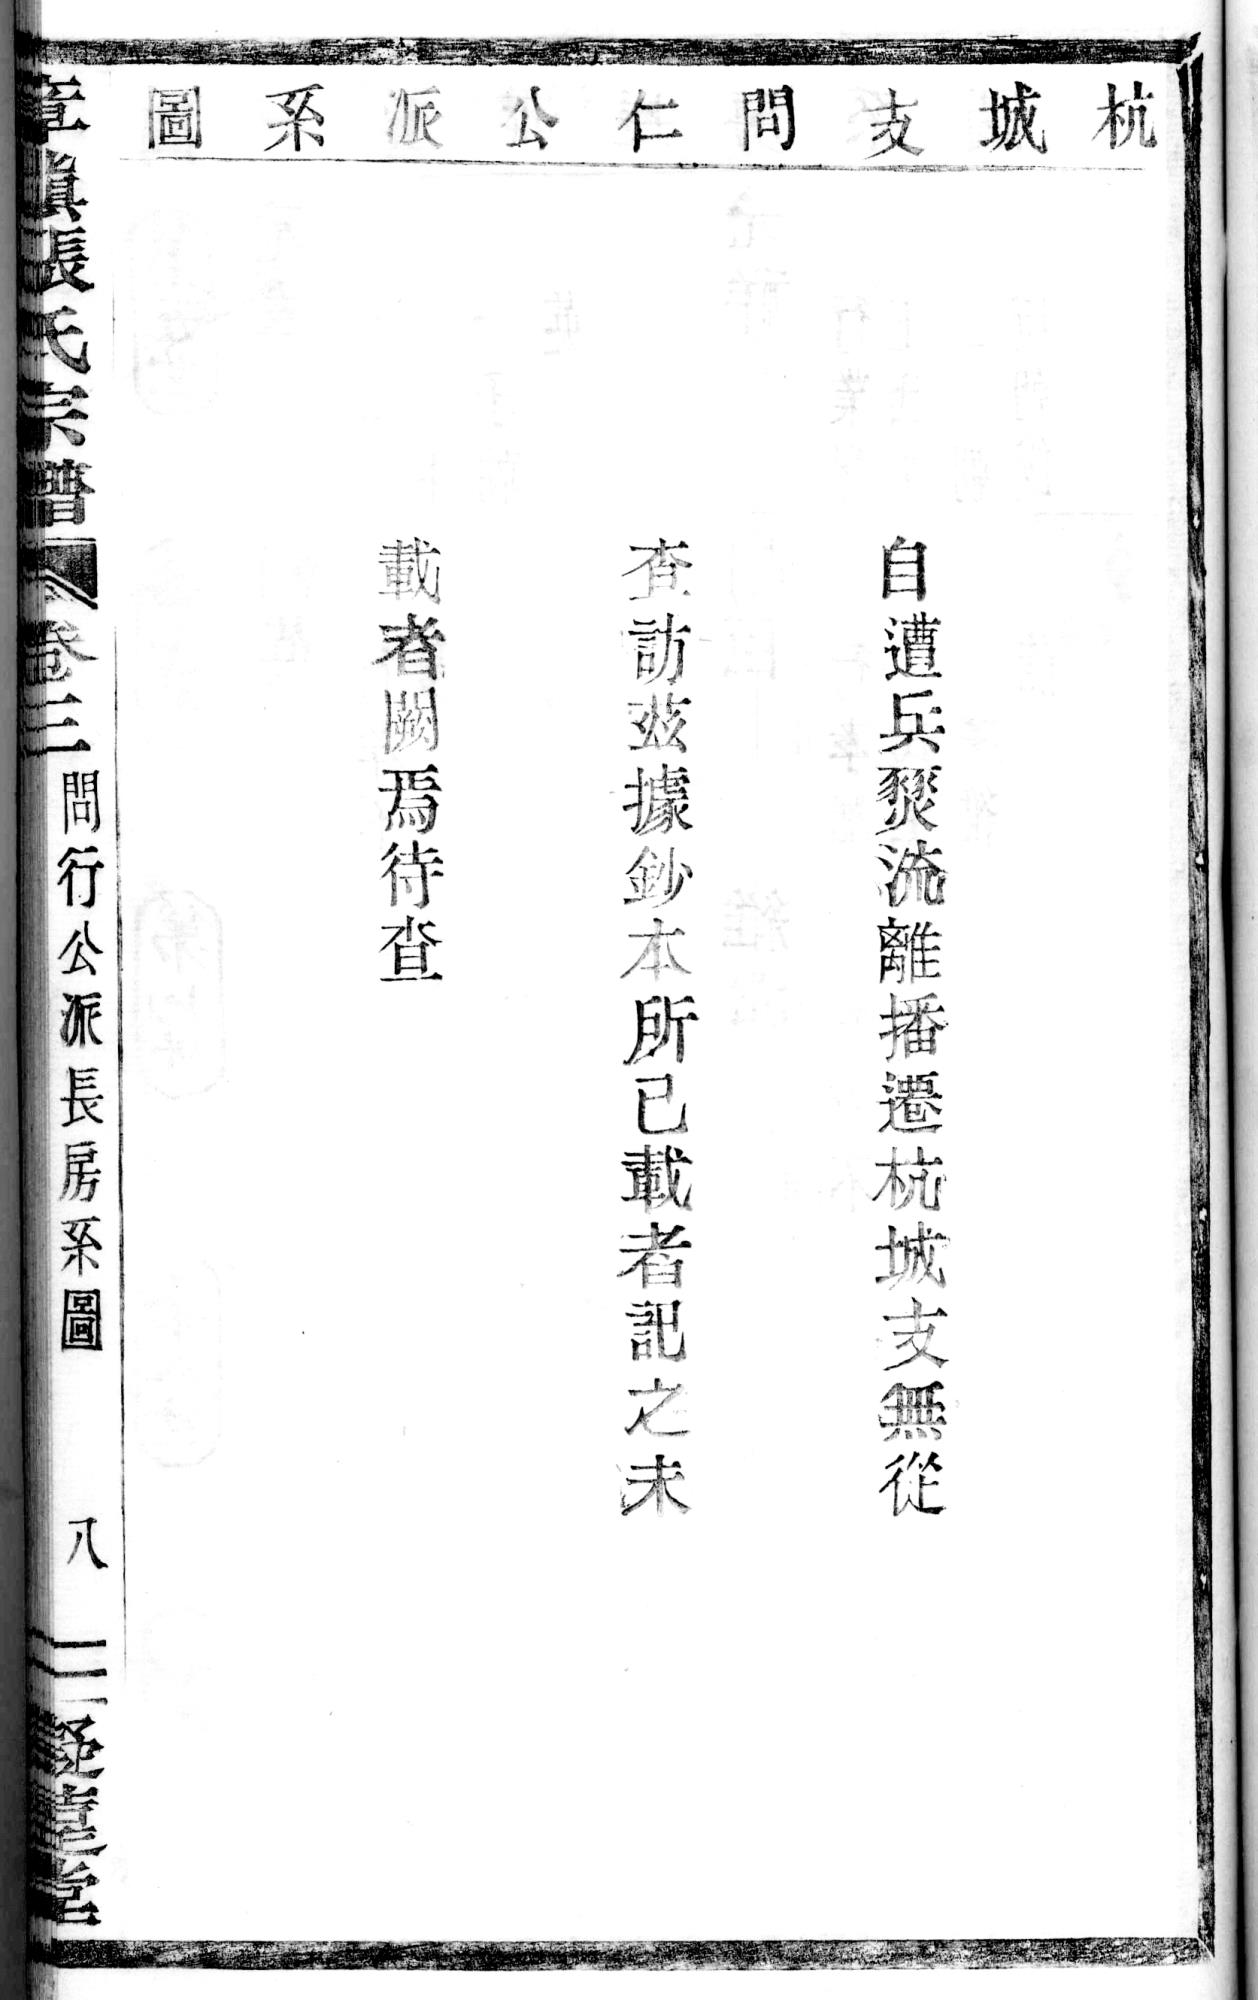 杭城支問仁公派系圖
自遭兵燹流離播遷杭城支無從
查訪茲據鈔本所已載者記之未
載者闕焉待查
章鎮張氏宗譜
卷三
問行公派長房系圖
八
堂